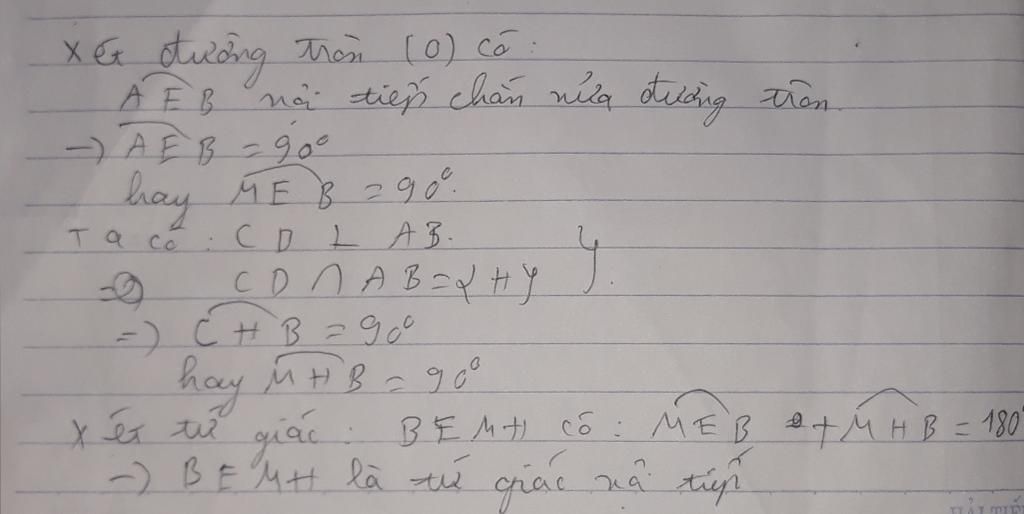 Xét đường tròn (O) có:
AEB nội tiếp chắn nửa đường tròn
=) AEB = 90°
hay MEB = 90°.
Ta có: CD ⊥ AB. }
CD ∩ AB = {H}
=) CHB = 90°
hay MHB = 90°
Xét tứ giác: BEMH có: MEB + MHB = 180°
=) BEMH là tứ giác nội tiếp